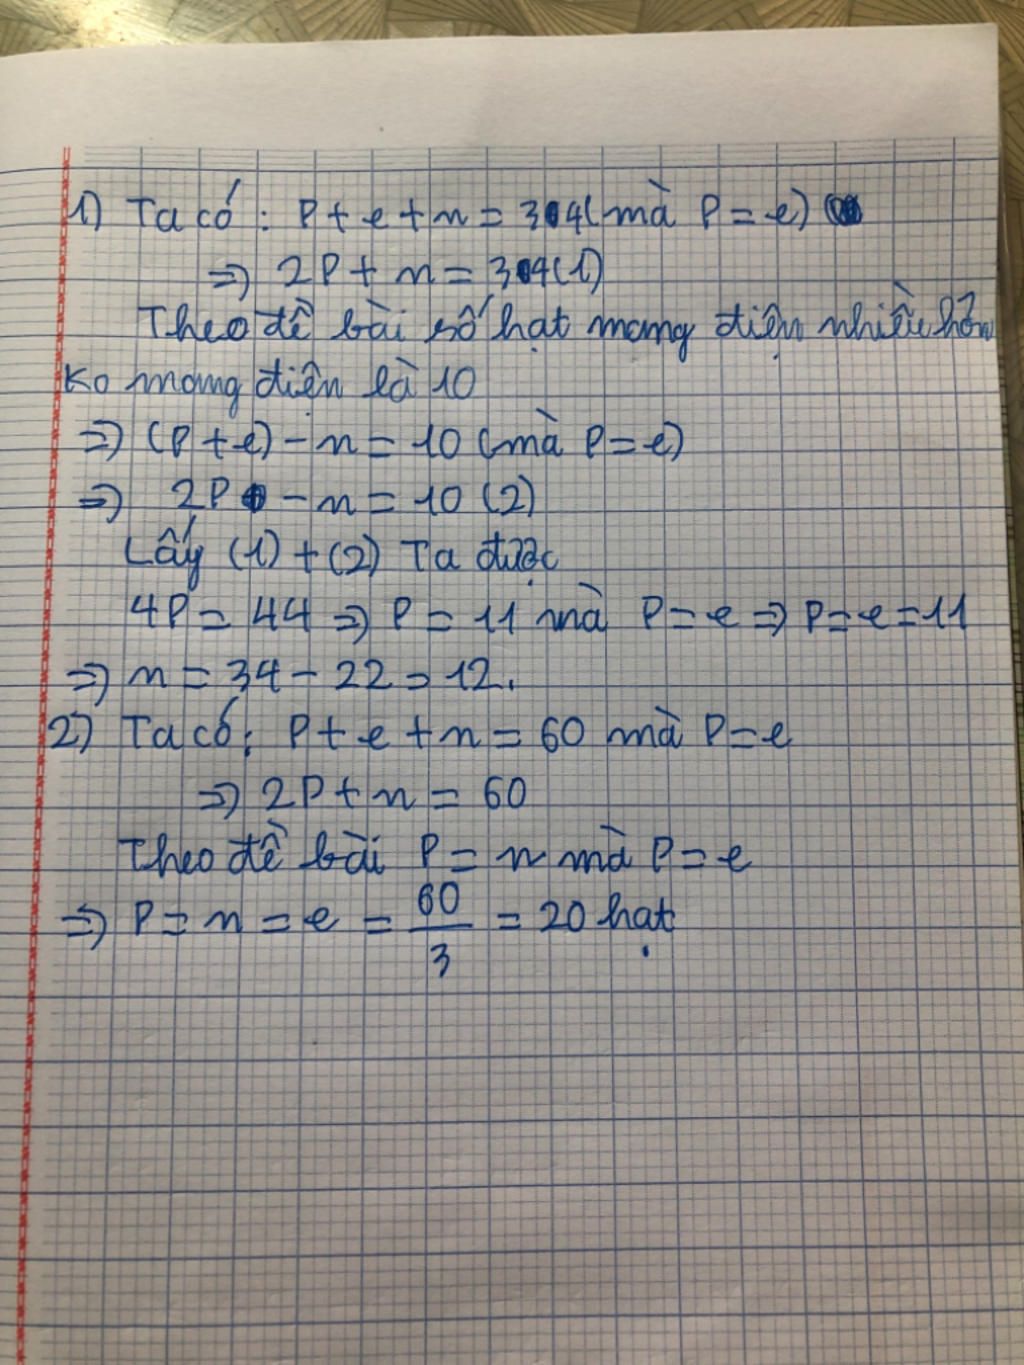 1) Ta có: P + e + n = 34 (mà P = e)
⇒ 2P + n = 34 (1)
Theo đề bài số hạt mang điện nhiều hơn
ko mang điện là 10
⇒ (P + e) - n = 10 (mà P = e)
⇒ 2P - n = 10 (2)
Lấy (1) + (2) Ta được
4P = 44 ⇒ P = 11 mà P = e ⇒ P = e = 11
⇒ n = 34 - 22 = 12.
2) Ta có: P + e + n = 60 mà P = e
⇒ 2P + n = 60
Theo đề bài P = n mà P = e
⇒ P = n = e = 60/3 = 20 hạt